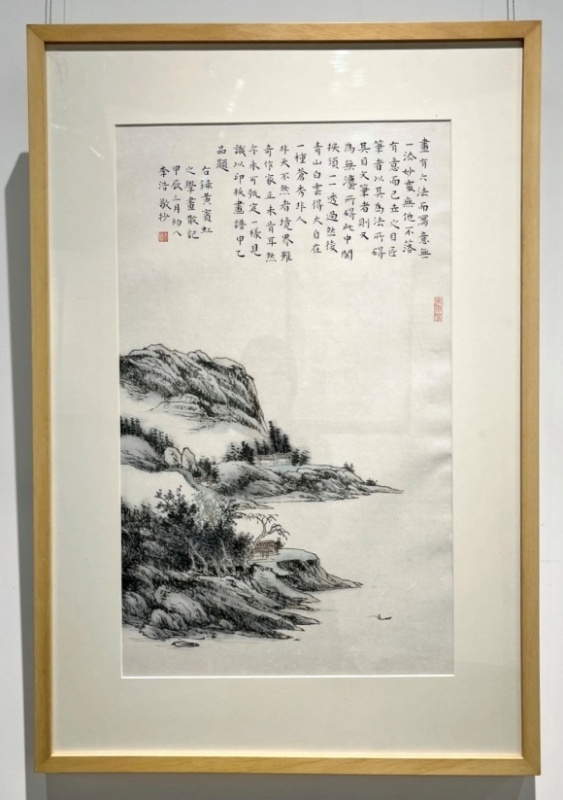 畫有六法而寫意無
一添妙處無他不落
有意而已世之目匠
筆者以其為法所碍
其目文筆者則又
為無灋所碍此中關
捩須一一透過然後
青山白雲得大自在
一種蒼秀非人
非天不然者境界雖
奇作家正未肯耳然
亦未可執定一樣見
識以印板畫譜甲乙
品題
右錄黃賓虹
之學畫散記
甲辰三月初八
李浩敬抄